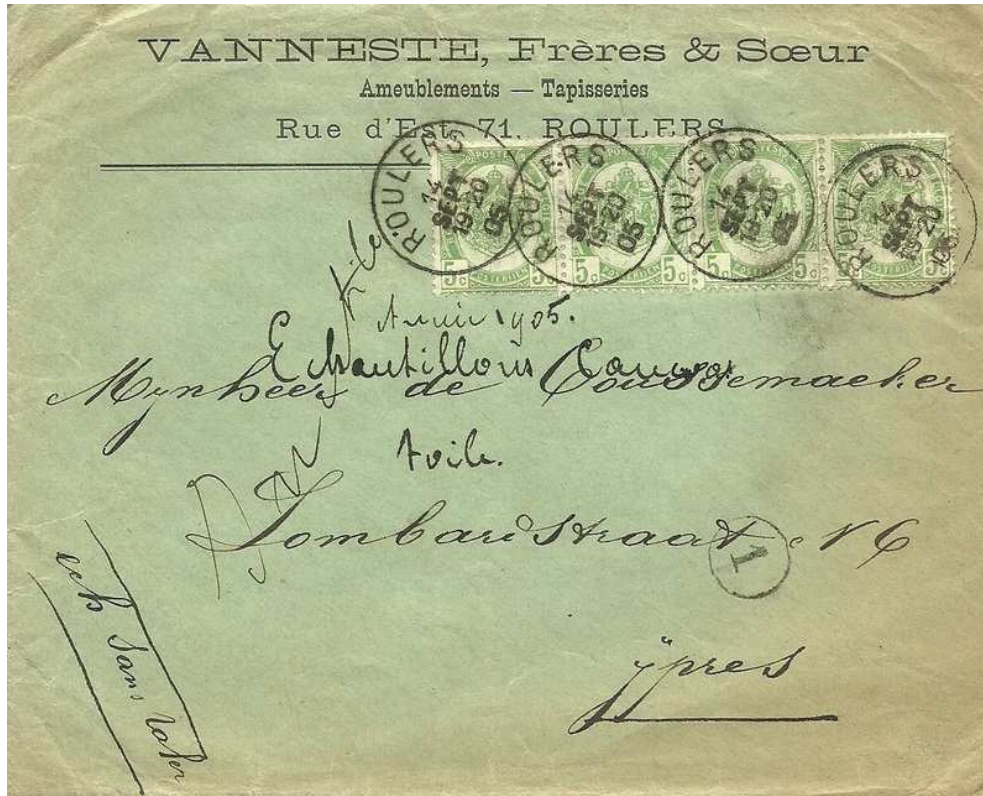 VANNESTE, Frères & Sœur
Ameublements — Tapisseries
Rue d'Est, 71. ROULERS
ROULERS 14 SEPT 19-20 05
ROULERS 14 SEPT 19-20 05
ROULERS 14 SEPT 19-20 05
ROULERS 14 SEPT 19-20 05
5c 5c 5c 5c 5c 5c 5c
1905.
Echantillons
Mynheer de Coussemaeker
toile.
Lombardstraat N 6
1
ech sans valeur
ÿpres